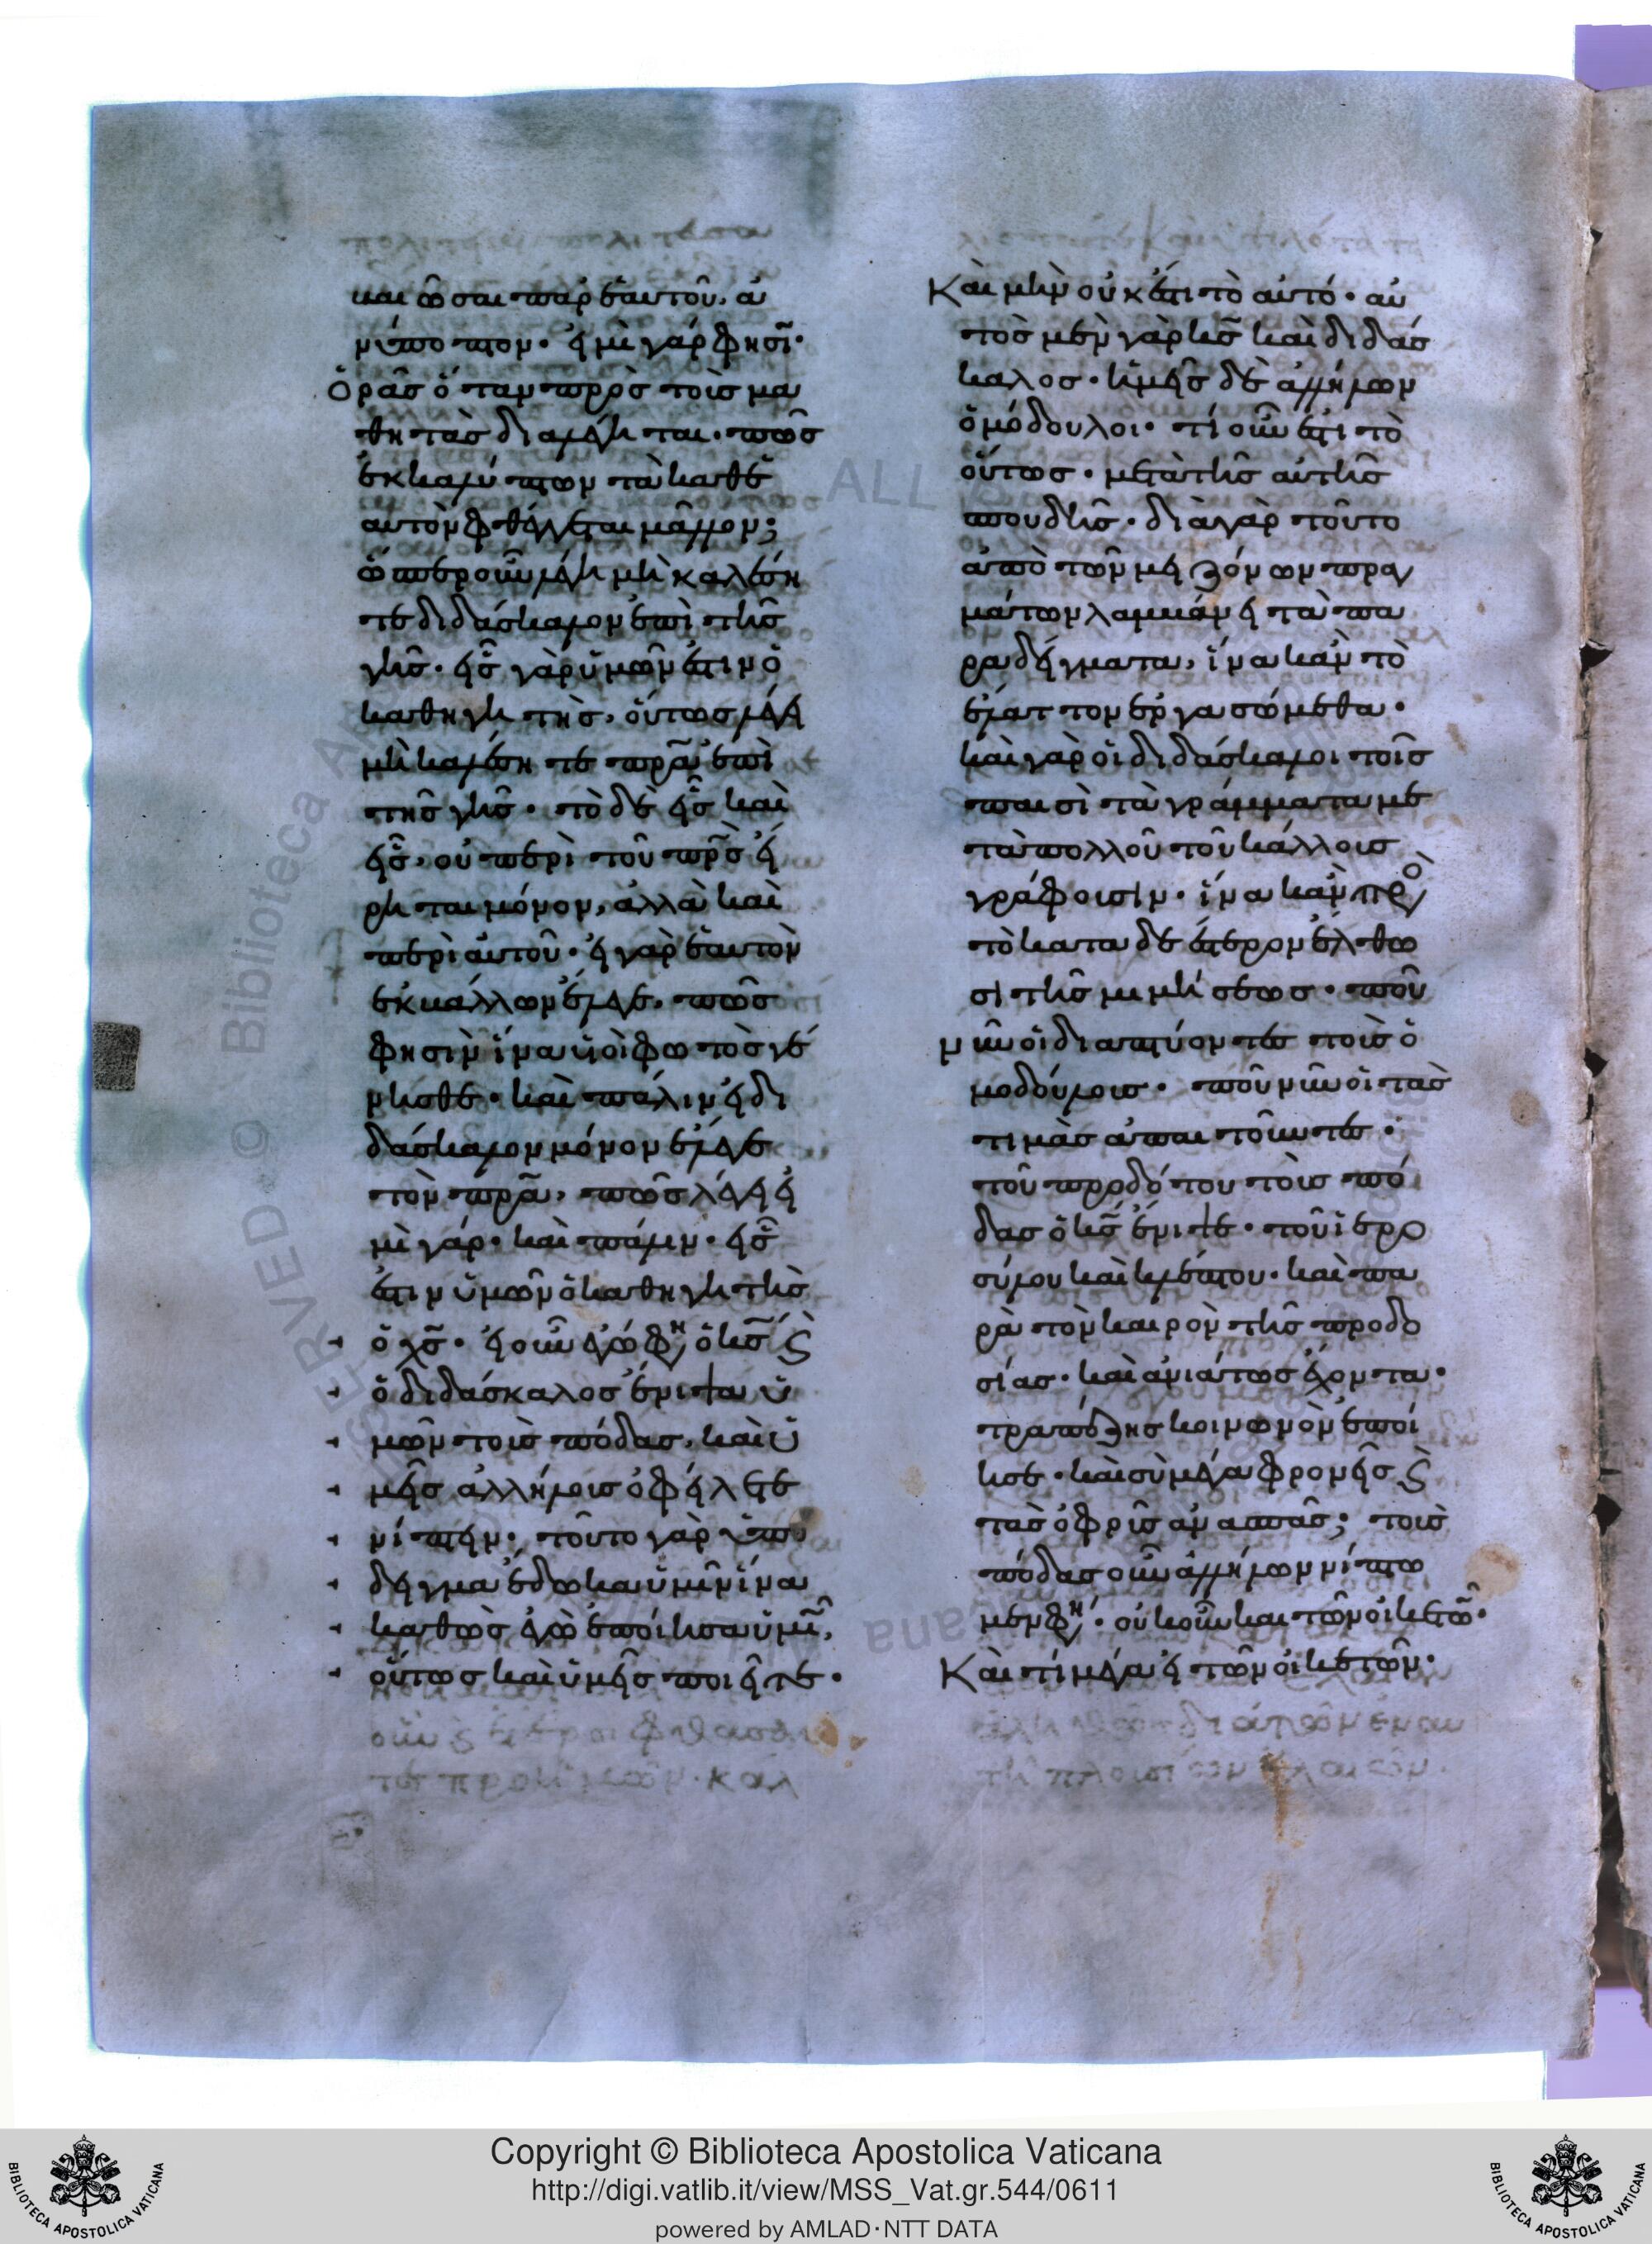 και ὦσαι παρ ἑαυτοῦ, ἀ
νύποπτον· εἰμὶ γάρ φησῖ·
Ὁρᾶς ὅταν πρὸς τοὺς μα
θητὰς διαλέγηται· πῶς
ἐκκαλύπτων τὰ καθ ἑ
αυτὸν φθέγγεται μᾶλλον;
ὥσπερ οὖν λέγει μὴ καλέση
τε διδάσκαλον ἐπὶ τῆς
γῆς· εἷς γὰρ ὑμῶν ἐστιν ὁ
καθηγητὴς, οὕτως λέγει
μὴ καλέσητε πρα ἐπὶ
τῆς γῆς· τὸ δὲ εἷς καὶ
εἷς, οὐ περὶ τοῦ πρς εἴ
ρηται μόνον, ἀλλὰ καὶ
περὶ αὐτοῦ· εἰ γὰρ ἑαυτὸν
ἐκβάλλων ἔλεγε, πῶς
φησὶν ἵνα υἱοὶ φωτὸς γέ
νησθε· καὶ πάλιν εἰ δι
δάσκαλον μόνον ἔλεγε
τὸν πρα, πῶς λέγει εἰ
μὶ γάρ· καὶ πάλιν· εἷς
ἐστιν ὑμῶν ὁ καθηγητὴς
ὁ χς· εἰ οὖν ἐγώ φη ὁ κς ϛ
ὁ διδάσκαλος ἔνιψα ὑ
μῶν τοὺς πόδας, καὶ ὑ
μεῖς ἀλλήλοις ὀφείλετε
νίπτειν· τοῦτο γὰρ ὑπό
δειγμα ἔδωκα ὑμῖν ἵνα
καθὼς ἐγὼ ἐποίησα ὑμῖ,
οὕτως καὶ ὑμεῖς ποιεῖτε·
Καὶ μὴν οὐκ ἔστι τὸ αὐτό· αὐ
τὸς μὲν γὰρ κς καὶ διδάσ
καλος· ὑμεῖς δὲ ἀλλήλων
ὁμόδουλοι· τί οὖν ἐστι τὸ
οὕτως· μετὰ τῆς αὐτῆς
σπουδῆς· διὰ γὰρ τοῦτο
ἀπὸ τῶν μειζόνων πραγ
μάτων λαμβάνει τὰ πα
ραδείγματα, ἵνα κἂν τὸ
ἔλαττον ἐργασώμεθα·
καὶ γὰρ οἱ διδάσκαλοι τοῖς
παισὶ τὰ γράμματα με
τὰ πολλοῦ τοῦ κάλλους
γράφουσιν· ἵνα κἂν πρὸς
τὸ καταδεέστερον ἔλθω
σι τῆς μιμήσεως· ποῦ
νῦν οἱ διαπτύοντες τοὺς ὁ
μοδούλους· ποῦ νῦν οἱ τὰς
τιμὰς ἀπαιτοῦντες·
τοῦ προδότου τοὺς πό
δας ὁ κς ἔνιψε· τοῦ ἱερο
σύλου καὶ κλέπτου· καὶ πα
ρὰ τὸν καιρὸν τῆς προδο
σίας· καὶ ἀνιάτως ἔχοντα·
τραπέζης κοινωνὸν ἐποί
ησε· καὶ σὺ μέγα φρονεῖς ϛ
τὰς ὀφρῦς ἀνασπᾶς; τοὺς
πόδας οὖν ἀλλήλων νίπτω
μεν φη· οὐκοῦν και τῶν οἰκετῶ·
Καὶ τί μέγα εἰ τῶν οἰκετῶν·
Copyright © Biblioteca Apostolica Vaticana
http://digi.vatlib.it/view/MSS_Vat.gr.544/0611
powered by AMLAD·NTT DATA
BIBLIOTECA APOSTOLICA VATICANA
BIBLIOTECA APOSTOLICA VATICANA